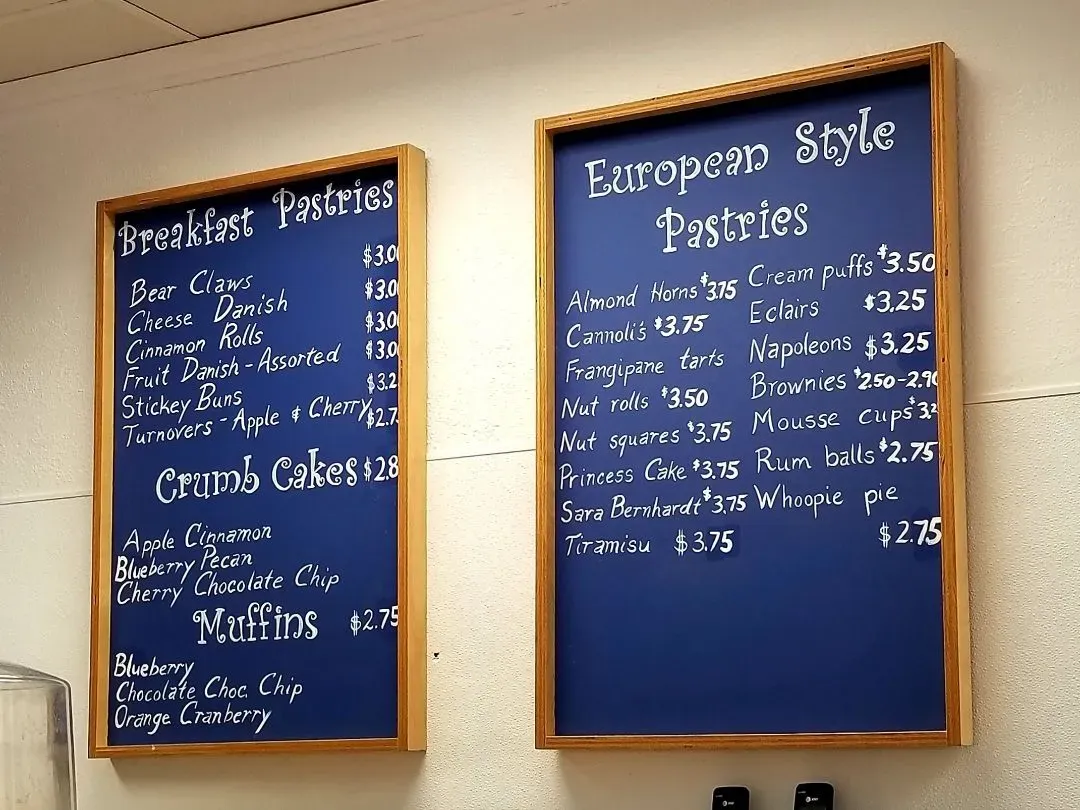 Breakfast Pastries
Bear Claws $3.00
Cheese Danish $3.00
Cinnamon Rolls $3.00
Fruit Danish - Assorted $3.00
Stickey Buns $3.2
Turnovers - Apple & Cherry $2.7
Crumb Cakes $2.8
Apple Cinnamon
Blueberry Pecan
Cherry Chocolate Chip
Muffins $2.75
Blueberry
Chocolate Choc. Chip
Orange Cranberry
European Style
Pastries
Almond Horns $3.75
Cannoli's $3.75
Frangipane tarts
Nut rolls $3.50
Nut squares $3.75
Princess Cake $3.75
Sara Bernhardt $3.75
Tiramisu $3.75
Cream puffs $3.50
Eclairs $3.25
Napoleons $3.25
Brownies $2.50-2.90
Mousse cups $3.2
Rum balls $2.75
Whoopie pie
$2.75